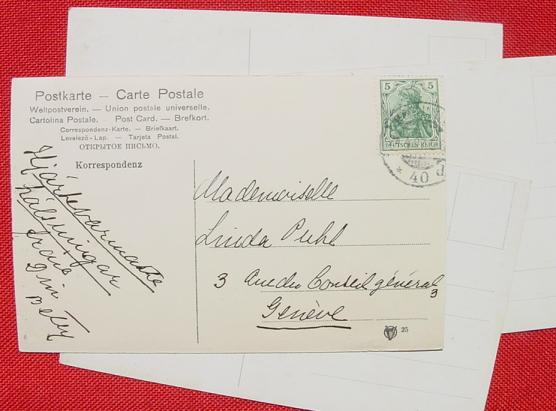 Postkarte — Carte Postale
Weltpostverein. — Union postale universelle.
Cartolina Postale. · Post Card. — Brefkort.
Correspondenz-Karte. — Briefkaart.
Levelező-Lap. — Tarjeta Postal.
ОТКРЫТОЕ ПИСЬМО.
Korrespondenz
Hjärtevarmaste
hälsningar
från
Din
5 5
DEUTSCHES REICH
* 40 d
Mademoiselle
Linda Puhl
3 rue du Conseil général
3
Genève
25